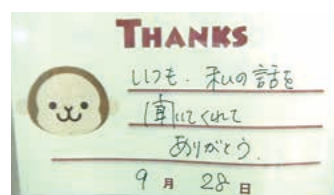 THANKS
いつも、私の話を
聞いてくれて
ありがとう.
9月28日